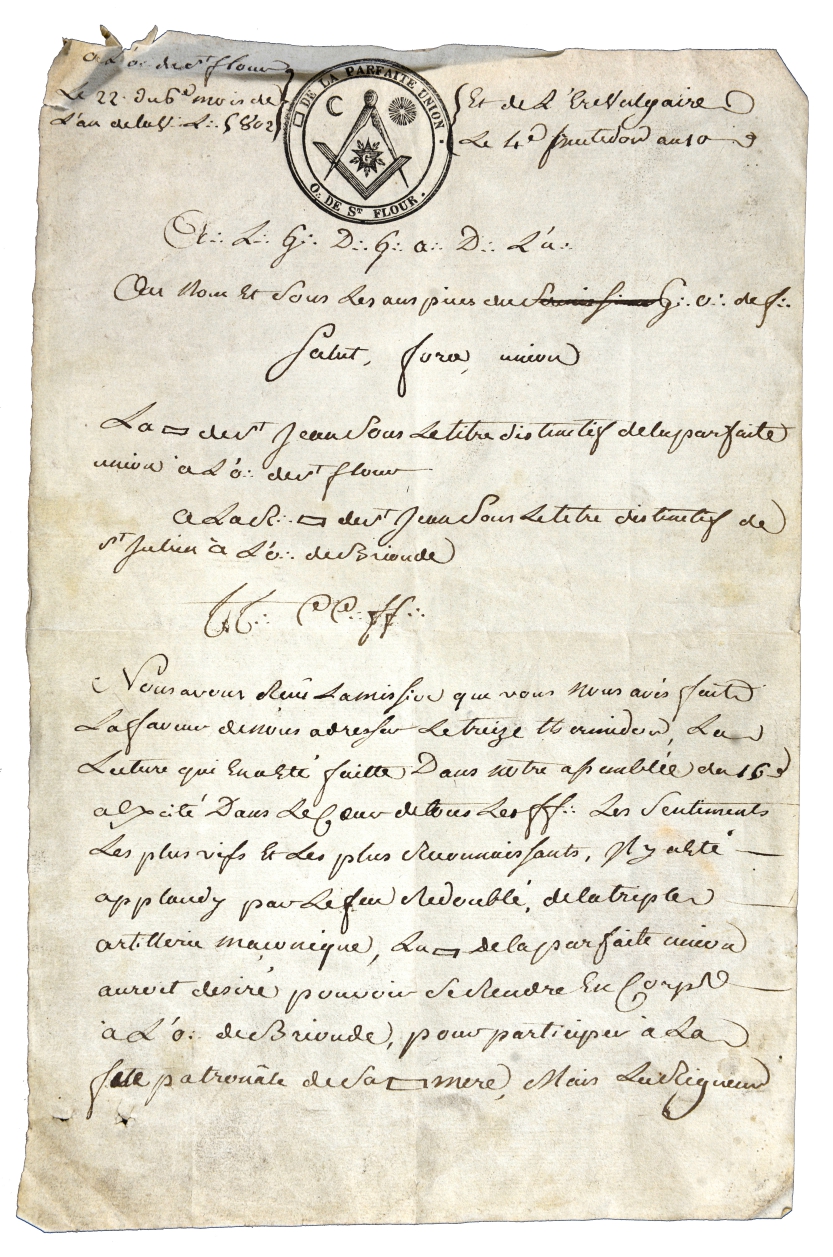 a L'o∴ de st flour
Le 22 du 6e mois de
L'an de la V∴ L∴ 5802
▭ DE LA PARFAITE UNION.
C
G
O∴ DE ST FLOUR.
Et de L'Ere Vulgaire
Le 4e fructidor an 10
A∴ L∴ G∴ D∴ G∴ a∴ D∴ L'u∴
Au Nom Et Sous Les auspices du G∴ o∴ de f∴
Salut, force, union
La ▭ de st Jean Sous Le titre distinctif de la parfaite
union a L'o∴ de st flour
a La R∴ ▭ de st Jean Sous Le titre distinctif de
st Julien à L'o∴ de Brioude
TT∴ CC∴ ff∴
Nous avons Reçu La missive que vous nous avés faite
La faveur de nous adresser Le treize thermidor, La
Lecture qui En a Eté faitte Dans notre assemblée du 16e
a Excité Dans Le Cœur de tous Les ff∴ Les Sentiments
Les plus vifs Et Les plus Reconnaissants, Il y a Eté
applaudy par Le feu Redoublé, de la triple
artillerie maçonique, La ▭ de la parfaite union
auroit desiré pouvoir Se Rendre En Corps
à L'o∴ de Brioude, pour participer à La
fete patronâle de Sa ▭ mere, Mais La Rigueur